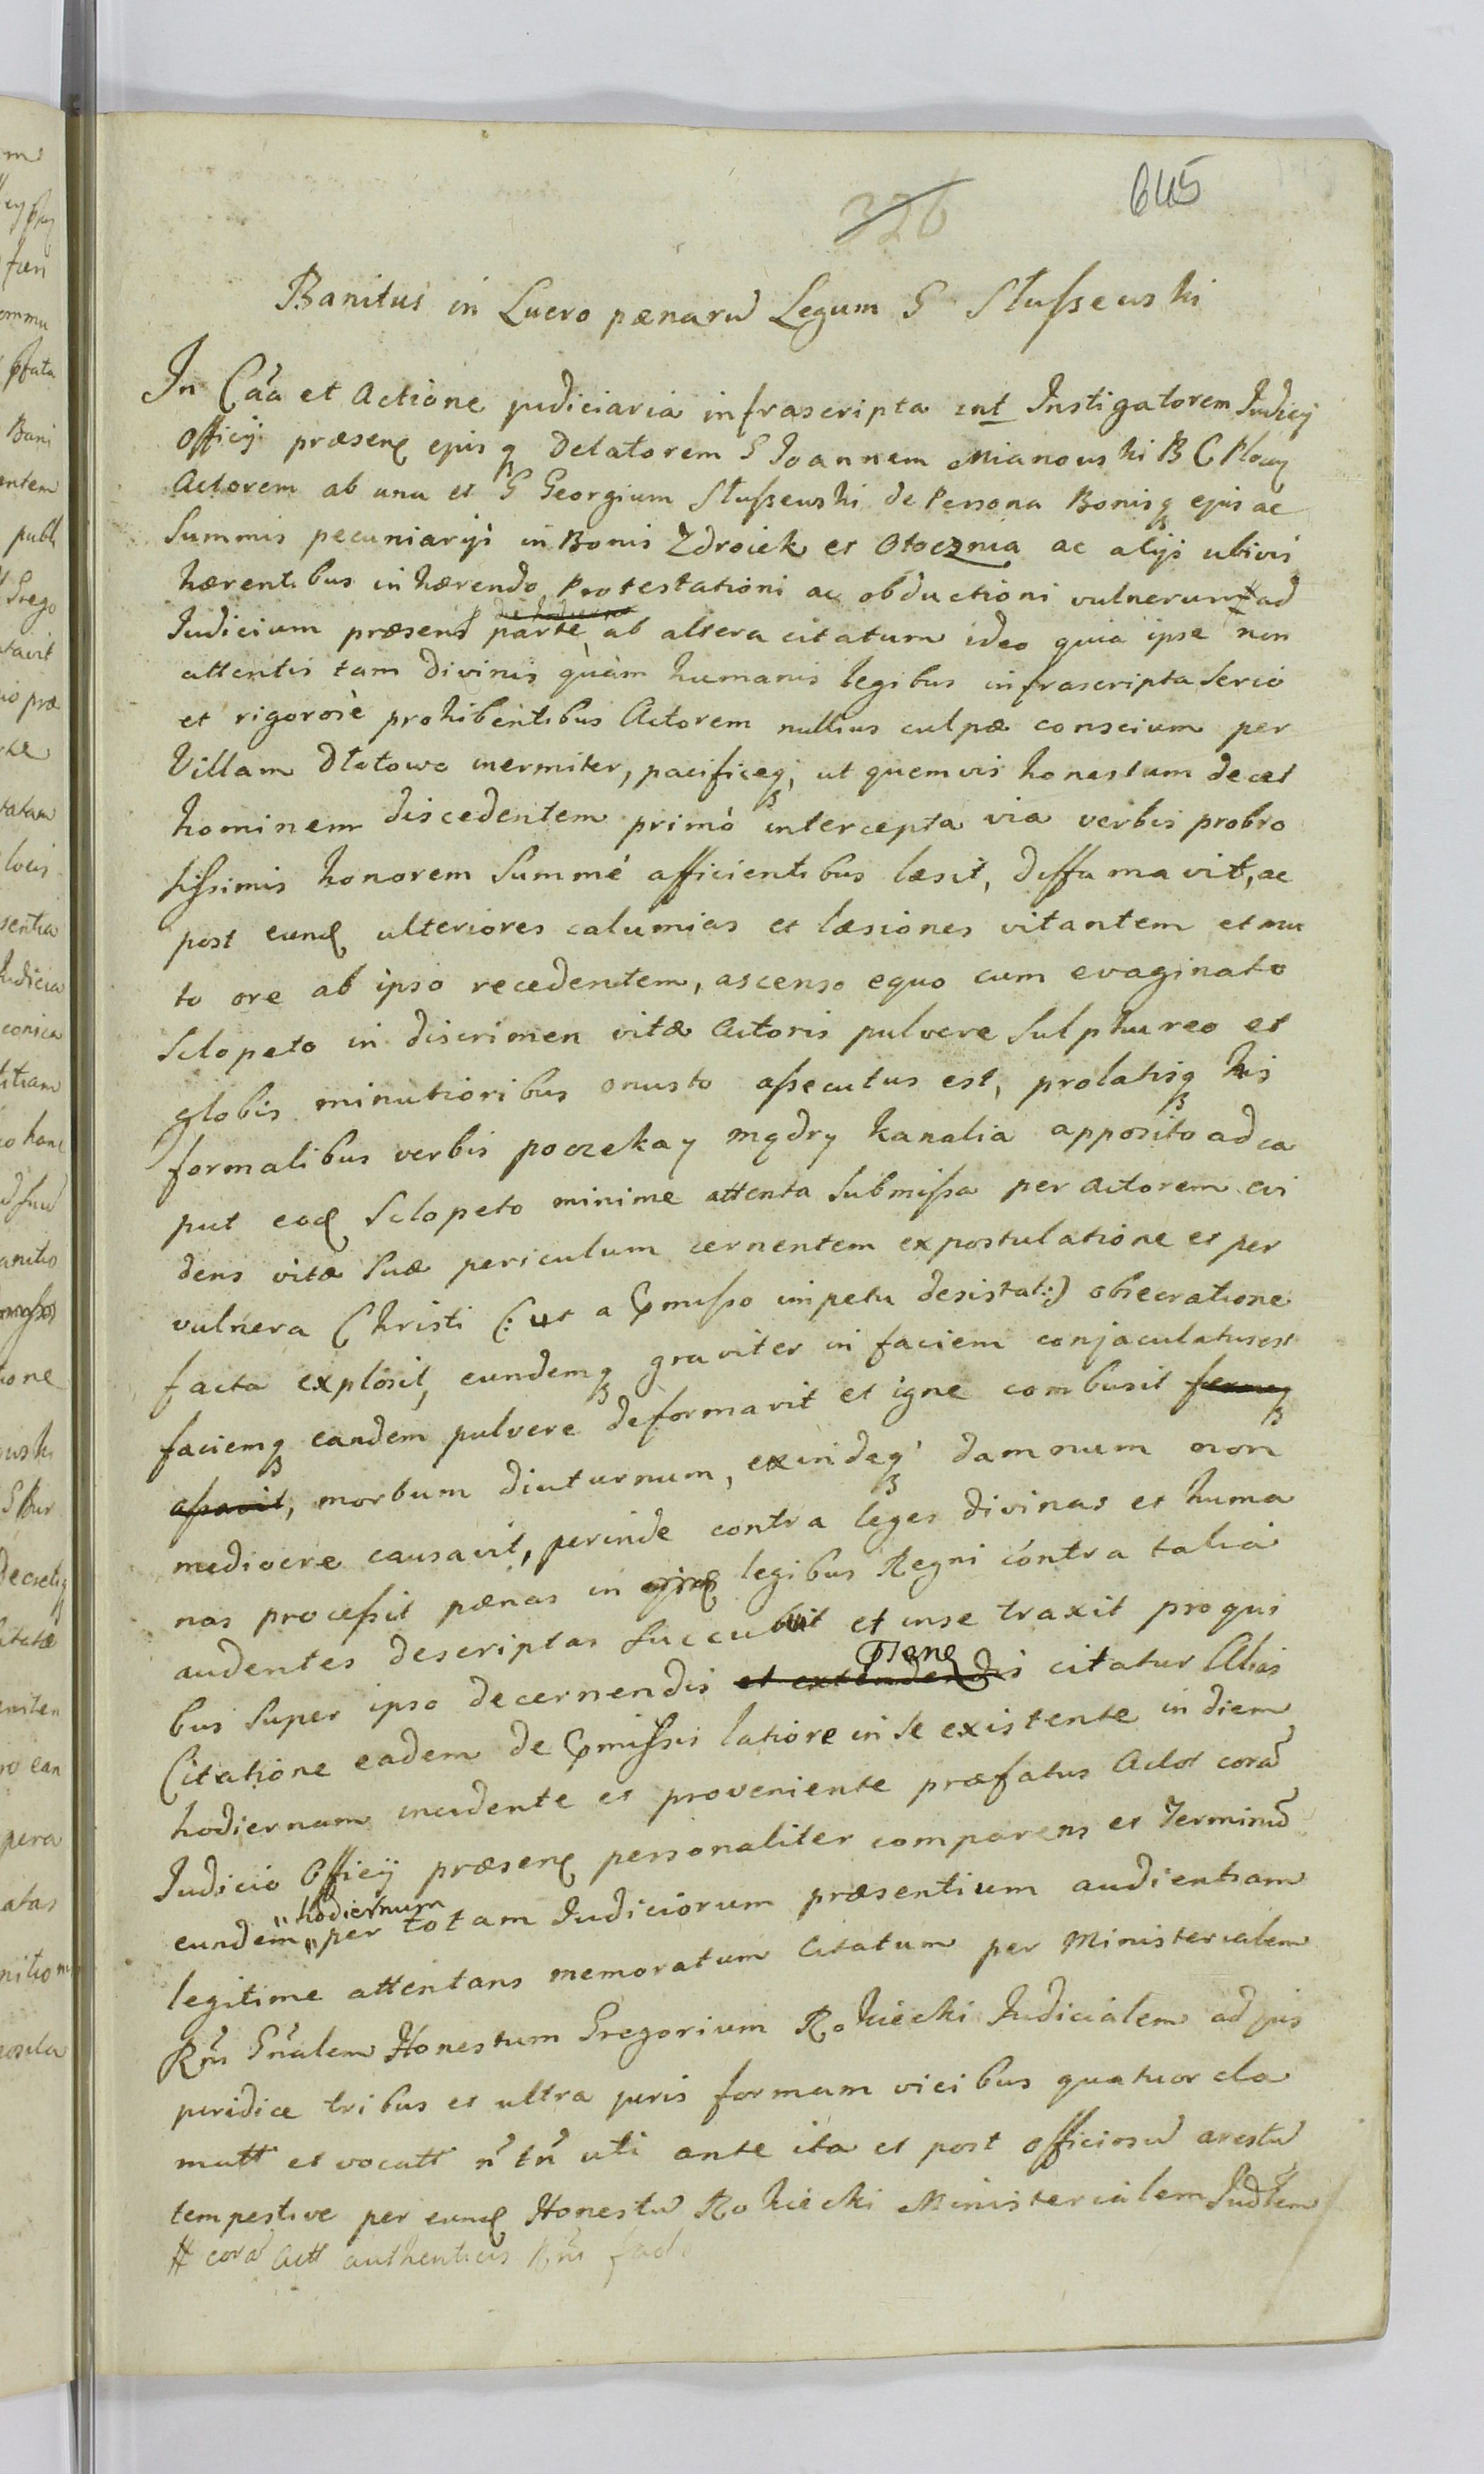 326
645
Banitus in Lucro pænarū Legum G Słuſzewski
In Cãa et Actione judiciaria infrascripta int Instigatorem Judicij
Officij præsenѕ ejusq Delatorem G Joannem Mianowski B C Plocen
Actorem ab una et G Georgium Słuſzewski de Persona Bonisq ejus ac
Summis pecuniarijs in Bonis Zdroiek et Otocznia ac alijs ubivis
hærentibus inhærendo Protestationi ac obductioni vulnerum # ad
Judicium præsens parte ab altera citatum ideo quia ipse non
attentis tam Divinis quàm humanis legibus infrascripta serio
et rigorosè prohibentibus Actorem nullius culpæ conscium per
Villam Dłotowo inermiter, pacificeq, ut quemvis honestum decet
hominem discedentem primò intercepta via verbis probro
siſsimis honorem Summé afficientibus læsit, diffamavit, ac
post eund ulteriores calumias et læsiones vitantem et mu
to ore ab ipso recedentem, ascenso equo cum evaginato
Sclopeto in discrimen vitæ Actoris pulvere Sulphureo et
globis minutioribus onusto aſsecutus est, prolatisq his
formalibus verbis poczekay mądry kanalia apposito ad ca
put eod Sclopeto minime attenta Submiſsa per Actorem evi
dens vitæ Suæ periculum cernentem expostulatione et per
vulnera Christi (: ut a pmiſso impetu desistat :) obsecratione
facta explosit, eundemq graviter in faciem conjaculatus est
faciemq eandem pulvere deformavit et igne combusit
aſsavit, morbum diuturnum, exindeq damnum non
mediocre causavit, perinde contra leges divinas et huma
nas proceſsit pænas in legibus Regni contra talia
audentes descriptas succubuit et in se traxit pro qui
bus super ipso decernendis et extendendis citatur Alias
Citatione eadem de pmiſsis latiore in se existente in diem
hodiernam incidente et proveniente præfatus Actor corã
Judicio Officij præsenѕ personaliter comparens et Terminũ
hodiernum
eundem per totam Judiciorum præsentium audientiam
legitime attentans memoratum Citatum per Ministerialem
Rñi Gñalem Honestum Gregorium Rokicki Judicialem ad jus
juridice tribus et ultra juris formam vicibus quatuor cla
matt et vocatt ñ tñ uti ante ita et post officiosũ arestũ
tempestive per eund Honestũ Rokicki Ministerialem Judlem
# corã Actt authenticis Rñi